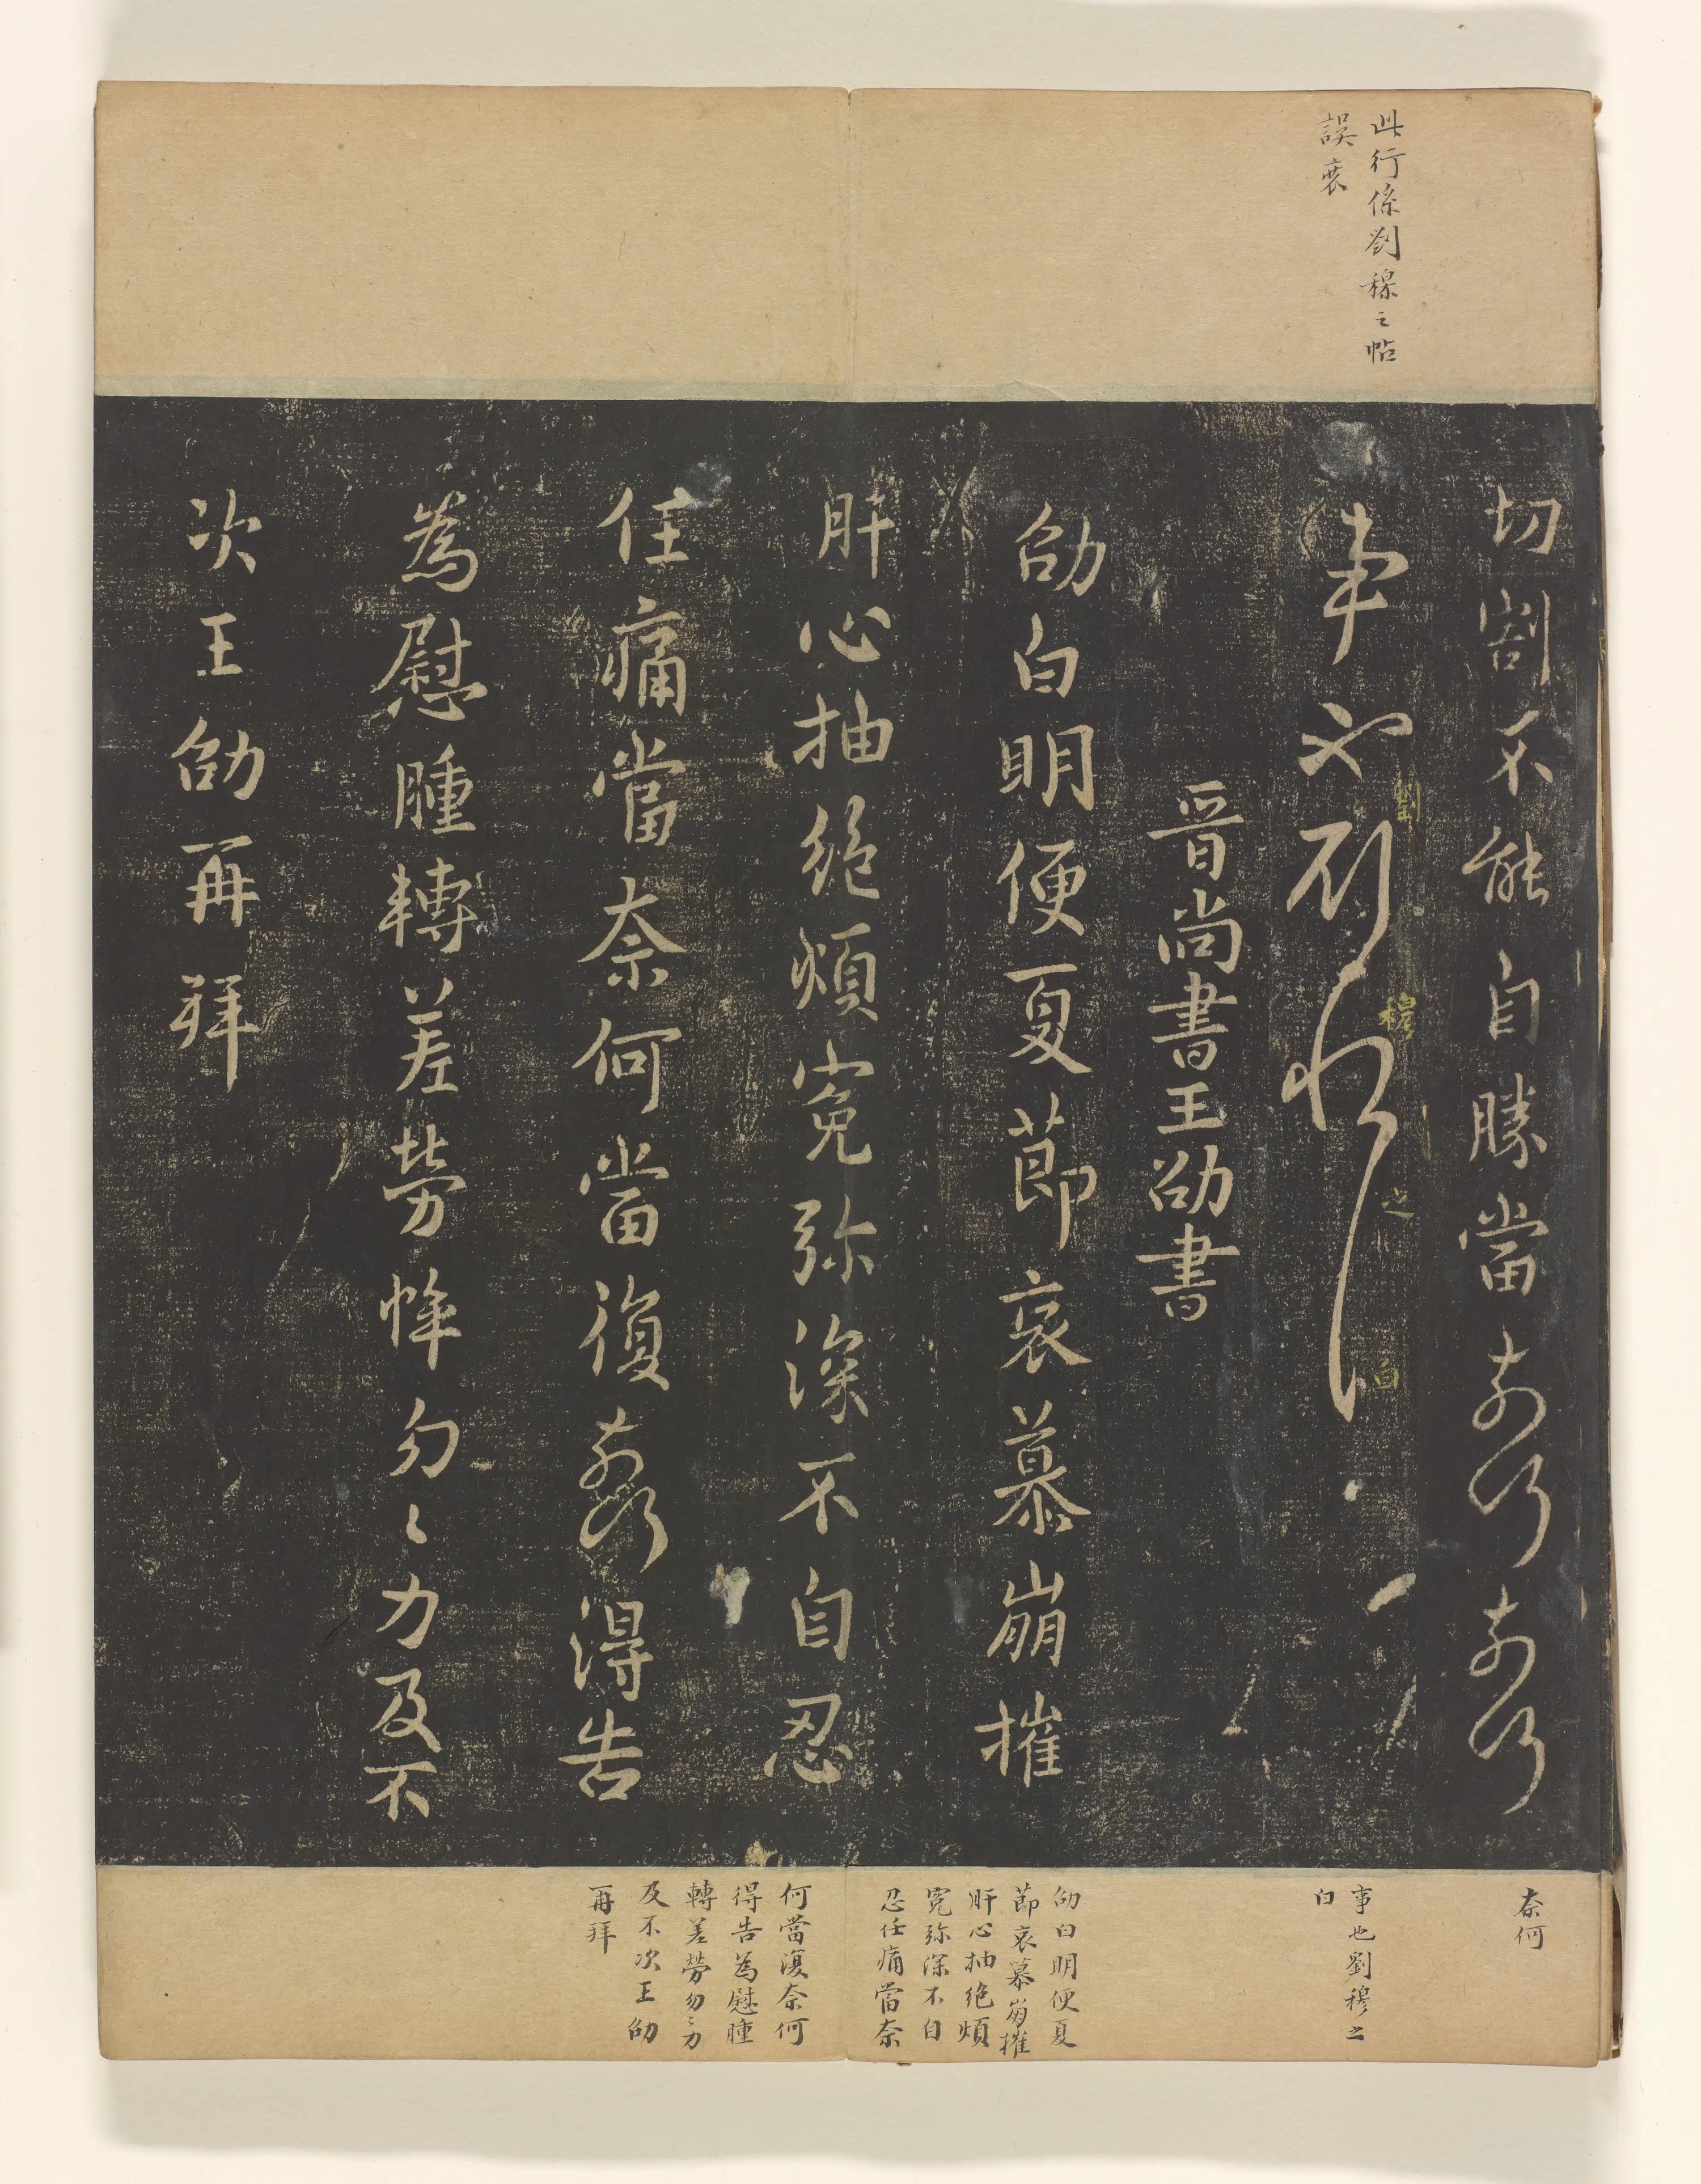 此行係劉穆之帖
誤裝
切割不能自勝當奈何奈何
事也劉穆之白
劉穆之白
晉尚書王劭書
劭白明便夏節哀慕崩摧
肝心抽絶煩寃弥深不自忍
任痛當奈何當復奈何得告
為慰腫轉差勞悴勿〻力及不
次王劭再拜
奈何
事也劉穆之
白
劭白明便夏
節哀慕崩摧
肝心抽绝煩
寃弥深不自
忍任痛當奈
何當復奈何
得告為慰腫
轉差勞勿〻力
及不次王劭
再拜